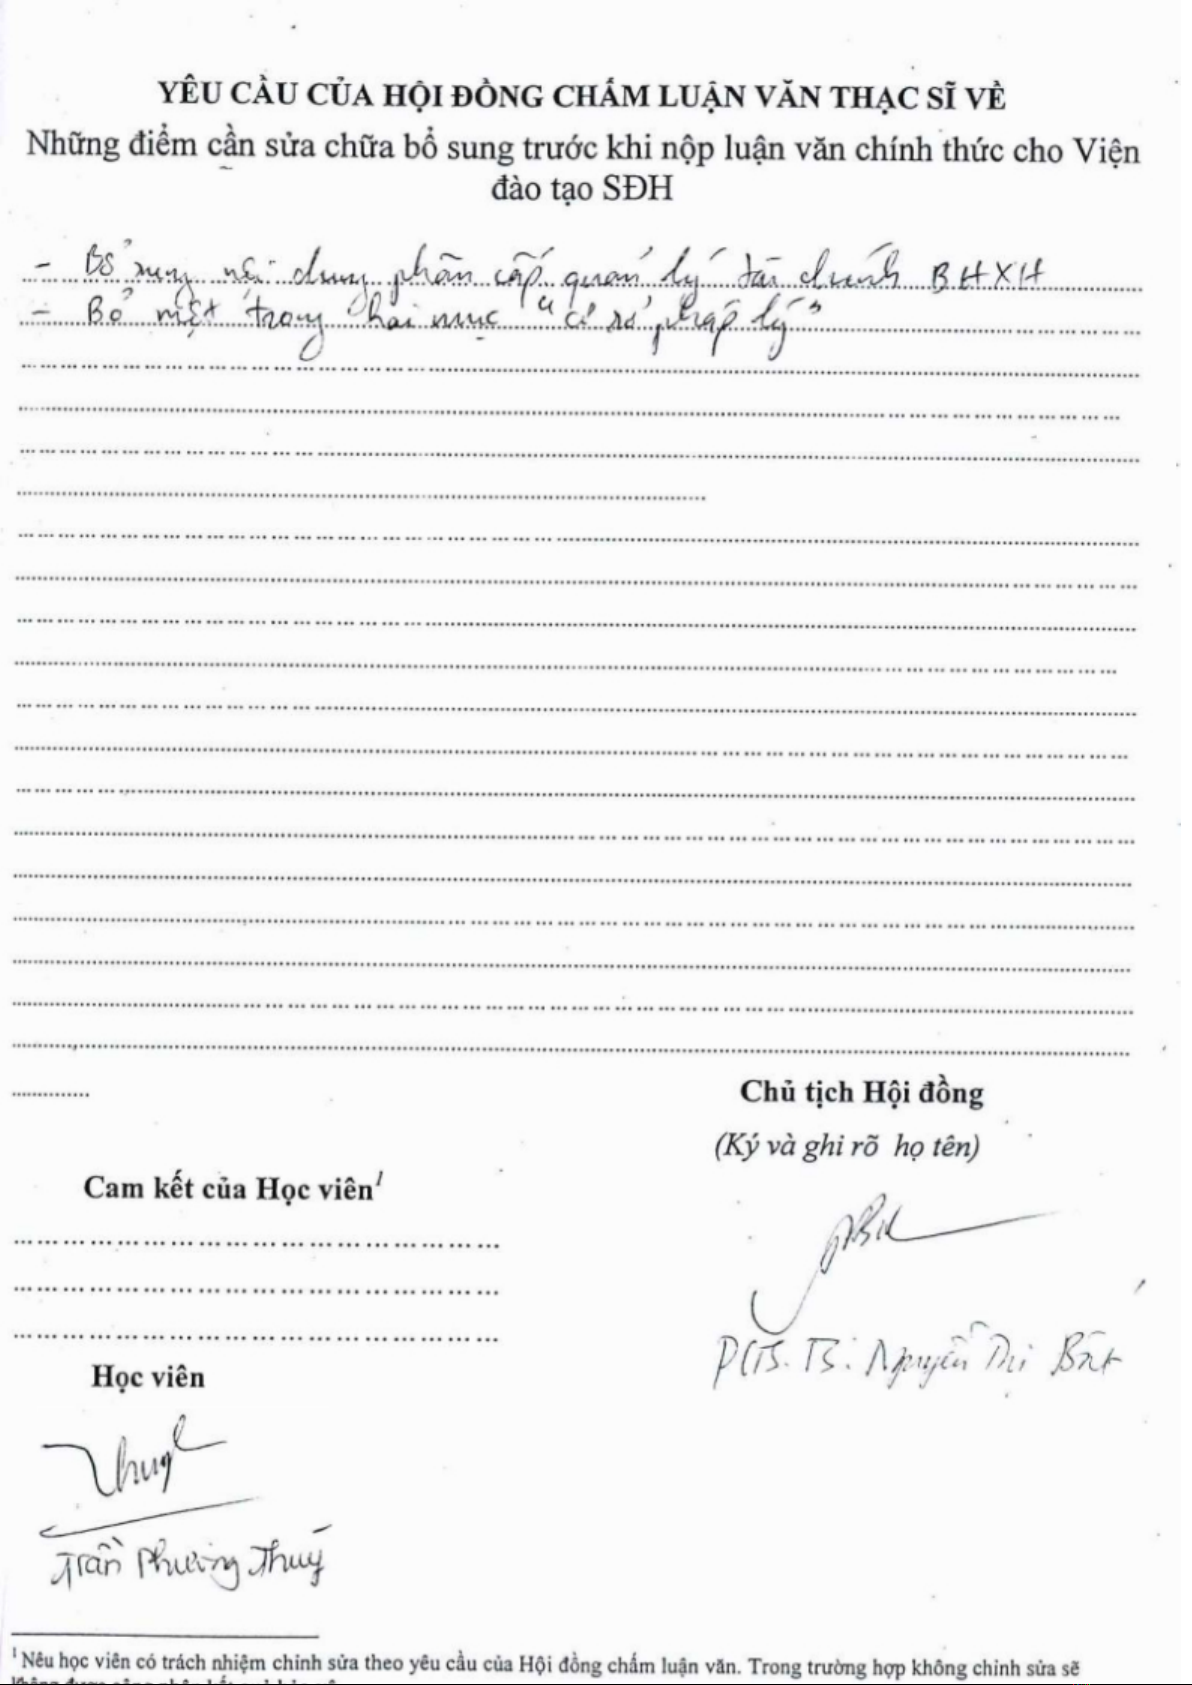 YÊU CẦU CỦA HỘI ĐỒNG CHẤM LUẬN VĂN THẠC SĨ VỀ
Những điểm cần sửa chữa bổ sung trước khi nộp luận văn chính thức cho Viện
đào tạo SĐH
- Bổ sung nội dung phân cấp quản lý tài chính BHXH
- Bỏ một trong hai mục "cơ sở pháp lý"
Chủ tịch Hội đồng
(Ký và ghi rõ họ tên)
Cam kết của Học viên¹
PGS. TS. Nguyễn Thị Bất
Học viên
Trần Phương Thuý
¹ Nêu học viên có trách nhiệm chỉnh sửa theo yêu cầu của Hội đồng chấm luận văn. Trong trường hợp không chỉnh sửa sẽ